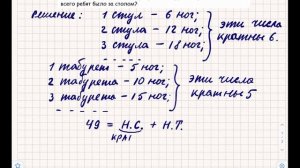 всего ребят было за столом?
Решение: 1 стул – 6 ног;
2 стула – 12 ног;
3 стула – 18 ног;
эти числа
кратны 6.
1 табурет – 5 ног;
2 табурета – 10 ног;
3 табурета – 15 ног;
эти числа
кратны 5
49 = Н.С. + Н.Т.
крат